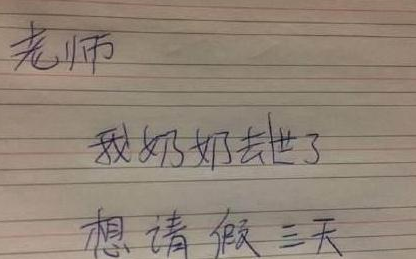 老师
我奶奶去世了
想请假三天